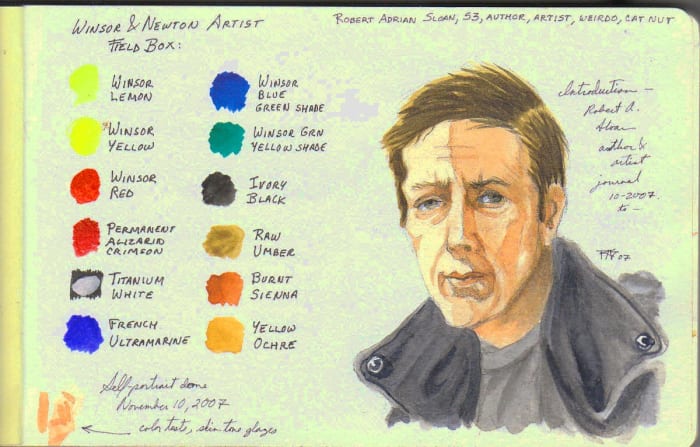 WINSOR & NEWTON ARTIST
FIELD BOX:
ROBERT ADRIAN SLOAN, 53, AUTHOR, ARTIST, WEIRDO, CAT NUT
WINSOR
LEMON
WINSOR
YELLOW
WINSOR
RED
PERMANENT
ALIZARID
CRIMSON
TITANIUM
WHITE
FRENCH
ULTRAMARINE
WINSOR
BLUE
GREEN SHADE
WINSOR GRN
YELLOW SHADE
IVORY
BLACK
RAW
UMBER
BURNT
SIENNA
YELLOW
OCHRE
Introduction –
Robert A.
Sloan
author &
artist
journal
10-2007.
to –
07
Self-portrait done
November 10, 2007
color tests, skin tone glazes